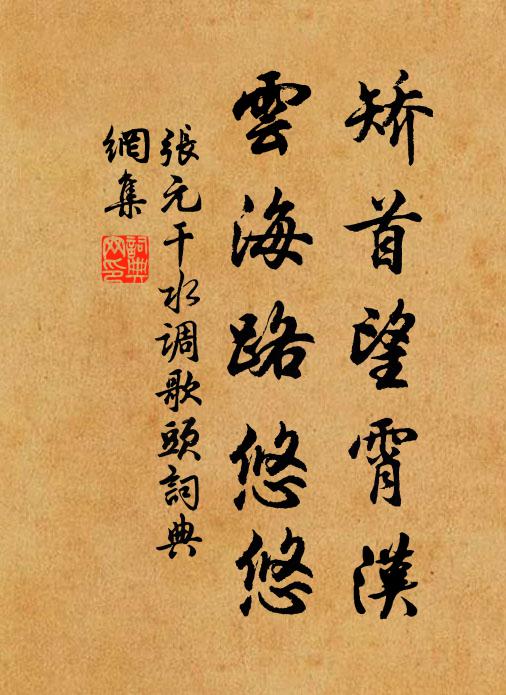 矫首望霄漢
雲海路悠悠
張元干水调歌頭詞典
網集
詞典网印